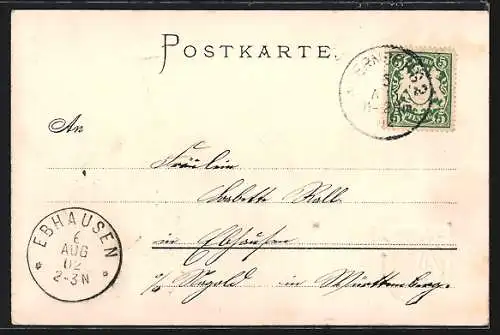 POSTKARTE.
5 5
5 5
An
Fräulein
Babette
in Ebhausen
o/ Nagold in Württemberg.
EBHAUSEN
6
AUG
02
2-3N